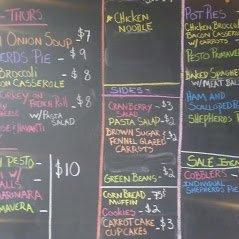 - THURS
ONION SOUP - $7
HERDS PIE - $9
BROCCOLI
CON CASSEROLE - $8
TURKEY ON
FRENCH ROLL - $8
W/PASTA
SALAD
PESTO -
$10
MARINARA
MAVERA
* CHICKEN
NOODLE
- SIDES -
CRANBERRY - $3
SALAD
PASTA SALAD - $2
BROWN SUGAR &
FENNEL GLAZED
CARROTS
GREEN BEANS - $2
CORN BREAD - 75¢
MUFFIN
COOKIES - $2
CARROT CAKE - $3
CUPCAKE
POT PIES
CHICKEN BROCCOLI
BACON CASSEROLE
W/CARROTS
PESTO PRIMAVE
BAKED SPAGHE
W/MEAT SAU
HAM AND
SCALLOPED
SHEPHERDS PI
SALE
COBBLERS -
INDIVIDUAL
SHEPHERDS PIE